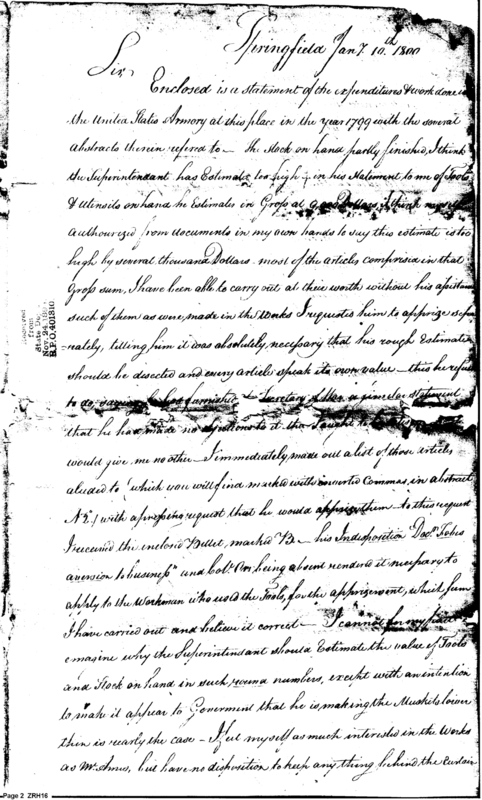 Springfield Jany. 10th 1800
Sir,
Enclosed is a statement of the expenditures & work done in
the United States Armory at this place in the year 1799 with the several
abstracts therein refered to — the Stock on hand partly finished, I think
the Superintendant has Estimated too high; in his Statement to me of Tools
& Utensils on hand he Estimates in Gross at Dollars, I think myself
authourized from documents in my own hands to say this estimate is too
high by several thousand Dollars. most of the articles comprised in that
Gross sum, I have been able to carry out at their worth without his assistance
such of them as were made in the Works I requested him to apprize sepe-
rately, telling him it was absolutely necessary that his rough Estimate
should be disected and every article speak its own value — this he refused
to do, saying he had furnished Secretary of War a similar statement
that he had made no objections to it
would give me no other — I immediately made out a list of those articles
aluded to (which you will find marked with inverted Commas, in abstract
No. E) with a request that he would apprize them — to this request
I received the inclosed Billet, marked B — his Indisposition Doct.
aversion to business" and Colo. Orr being absent rendered it necessary to
apply to the Workmen who used the Tools, for the apprizement, which sum
I have carried out and believe it correct — I cannot for my part
emagine why the Superintendant should Estimate the value of Tools
and Stock on hand in such round numbers, except with an intention
to make it appear to Goverment that he is making the Muskets lower
then is really the case — I feel myself as much interested in the Works
as Mr. Ames, but have no disposition to keep any thing behind the Curtain
Received
from
State De
Nov. 24, 18
B.P.O. 401810
Page 2 ZRH16